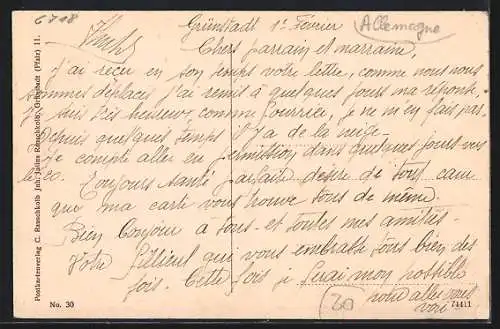 6718
Grünstadt 1er Février
Allemagne
Chers parrain et marraine,
J'ai reçu en son temps votre lettre, comme nous nous
sommes déplacés j'ai remis à quelques jours ma réponse.
Je suis très heureux comme fourrier, je ne m'en fais pas.
Depuis quelques temps il y a de la neige.
Je compte aller en permission dans quelques jours vers
le 20.
Toujours santé parfaite désire de tout cœur
que ma carte vous trouve tous de même
Bien bonjour à tous et toutes mes amitiés
Votre filleul qui vous embrasse tous bien des
fois. Cette fois je ferai mon possible
pour aller vous
voir
20
Postkartenverlag C. Rauschkolb Inh. Julius Rauschkolb, Grünstadt (Pfalz) 11.
No. 30
74411